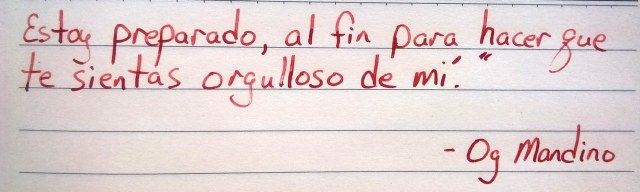 Estoy preparado, al fin para hacer que
te sientas orgulloso de mí."
- Og Mandino